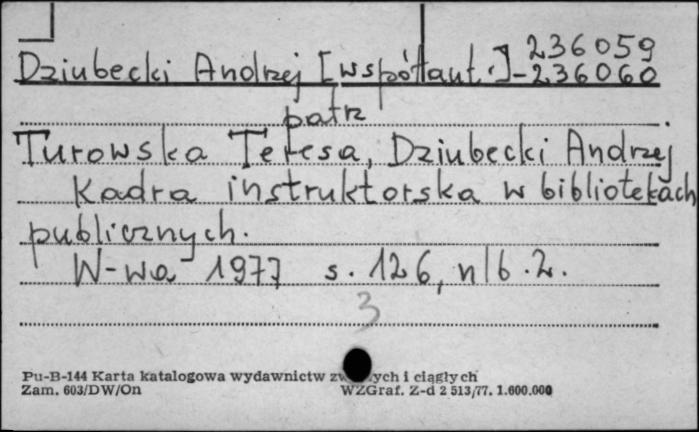 236059
Dziubecki Andrzej [współaut.]-236060
patrz
Turowska Teresa, Dziubecki Andrzej
Kadra instruktorska w bibliotekach
publicznych.
W-wa 1977 s. 126, nlb. 2.
3
Pu-B-144 Karta katalogowa wydawnictw i ciągłych
Zam. 603/DW/On WZGraf. Z-d 2 513/77. 1.600.000